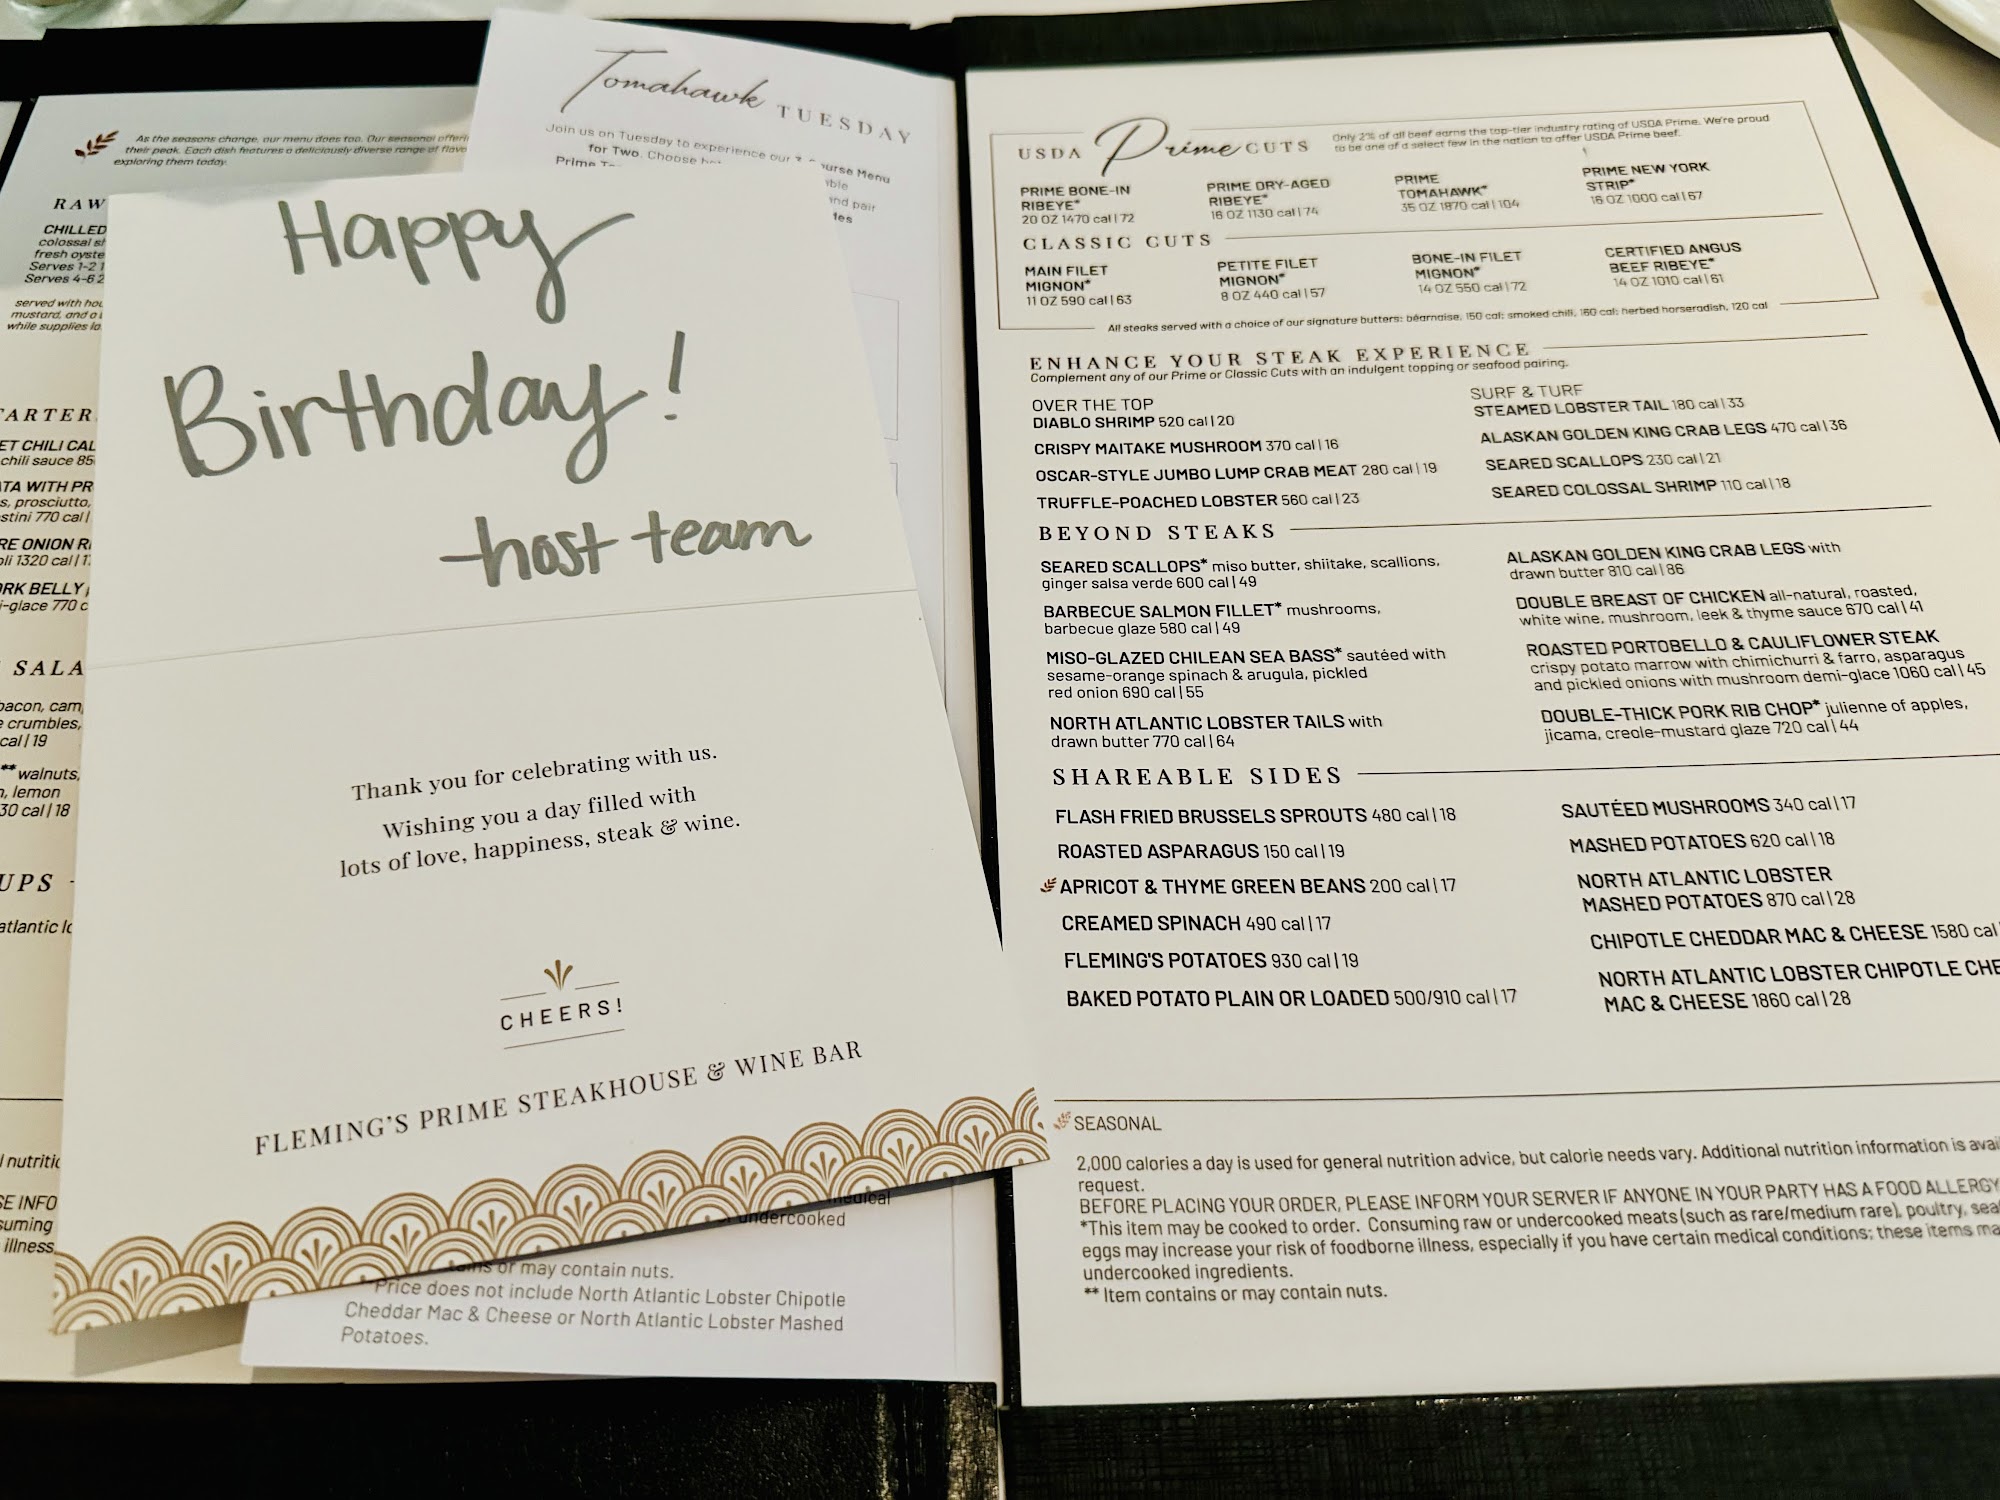 As the seasons change, our menu does too. Our seasonal
their peak. Each dish features a deliciously diverse range of
exploring them today.
RAW
CHILLED
colossal
fresh
Serves 1-2
Serves 4-6
served with
mustard, and a
while supplies
CHILI
chili sauce
WITH
prosciutto,
770 cal |
ONION
1320 cal |
BELLY
770
bacon,
crumbles,
cal | 19
** walnuts,
lemon
cal | 18
atlantic
INFO
illness
Tomahawk TUESDAY
Join us on Tuesday to experience our
for Two. Choose
Menu
Prime
pair
Happy
Birthday!
-host team
Thank you for celebrating with us.
Wishing you a day filled with
lots of love, happiness, steak & wine.
CHEERS!
FLEMING'S PRIME STEAKHOUSE & WINE BAR
medical
undercooked
or may contain nuts.
Price does not include North Atlantic Lobster Chipotle
Cheddar Mac & Cheese or North Atlantic Lobster Mashed
Potatoes.
USDA Prime CUTS
Only 2% of all beef earns the top-tier industry rating of USDA Prime. We're proud
to be one of a select few in the nation to offer USDA Prime beef.
PRIME BONE-IN
RIBEYE*
20 OZ 1470 cal | 72
PRIME DRY-AGED
RIBEYE*
16 OZ 1130 cal | 74
PRIME
TOMAHAWK*
35 OZ 1870 cal | 104
PRIME NEW YORK
STRIP*
16 OZ 1000 cal | 67
CLASSIC CUTS
MAIN FILET
MIGNON*
11 OZ 590 cal | 63
PETITE FILET
MIGNON*
8 OZ 440 cal | 57
BONE-IN FILET
MIGNON*
14 OZ 550 cal | 72
CERTIFIED ANGUS
BEEF RIBEYE*
14 OZ 1010 cal | 61
All steaks served with a choice of our signature butters: béarnaise, 150 cal; smoked chili, 160 cal; herbed horseradish, 120 cal
ENHANCE YOUR STEAK EXPERIENCE
Complement any of our Prime or Classic Cuts with an indulgent topping or seafood pairing.
OVER THE TOP
DIABLO SHRIMP 520 cal | 20
CRISPY MAITAKE MUSHROOM 370 cal | 16
OSCAR-STYLE JUMBO LUMP CRAB MEAT 280 cal | 19
TRUFFLE-POACHED LOBSTER 560 cal | 23
SURF & TURF
STEAMED LOBSTER TAIL 180 cal | 33
ALASKAN GOLDEN KING CRAB LEGS 470 cal | 36
SEARED SCALLOPS 230 cal | 21
SEARED COLOSSAL SHRIMP 110 cal | 18
BEYOND STEAKS
SEARED SCALLOPS* miso butter, shiitake, scallions,
ginger salsa verde 600 cal | 49
BARBECUE SALMON FILLET* mushrooms,
barbecue glaze 580 cal | 49
MISO-GLAZED CHILEAN SEA BASS* sautéed with
sesame-orange spinach & arugula, pickled
red onion 690 cal | 55
NORTH ATLANTIC LOBSTER TAILS with
drawn butter 770 cal | 64
ALASKAN GOLDEN KING CRAB LEGS with
drawn butter 810 cal | 86
DOUBLE BREAST OF CHICKEN all-natural, roasted,
white wine, mushroom, leek & thyme sauce 670 cal | 41
ROASTED PORTOBELLO & CAULIFLOWER STEAK
crispy potato marrow with chimichurri & farro, asparagus
and pickled onions with mushroom demi-glace 1060 cal | 45
DOUBLE-THICK PORK RIB CHOP* julienne of apples,
jicama, creole-mustard glaze 720 cal | 44
SHAREABLE SIDES
FLASH FRIED BRUSSELS SPROUTS 480 cal | 18
ROASTED ASPARAGUS 150 cal | 19
APRICOT & THYME GREEN BEANS 200 cal | 17
CREAMED SPINACH 490 cal | 17
FLEMING'S POTATOES 930 cal | 19
BAKED POTATO PLAIN OR LOADED 500/910 cal | 17
SAUTÉED MUSHROOMS 340 cal | 17
MASHED POTATOES 620 cal | 18
NORTH ATLANTIC LOBSTER
MASHED POTATOES 870 cal | 28
CHIPOTLE CHEDDAR MAC & CHEESE 1580 cal
NORTH ATLANTIC LOBSTER CHIPOTLE
MAC & CHEESE 1860 cal | 28
SEASONAL
2,000 calories a day is used for general nutrition advice, but calorie needs vary. Additional nutrition information is
request.
BEFORE PLACING YOUR ORDER, PLEASE INFORM YOUR SERVER IF ANYONE IN YOUR PARTY HAS A FOOD ALLERGY
*This item may be cooked to order. Consuming raw or undercooked meats (such as rare/medium rare), poultry,
eggs may increase your risk of foodborne illness, especially if you have certain medical conditions; these items
undercooked ingredients.
** Item contains or may contain nuts.